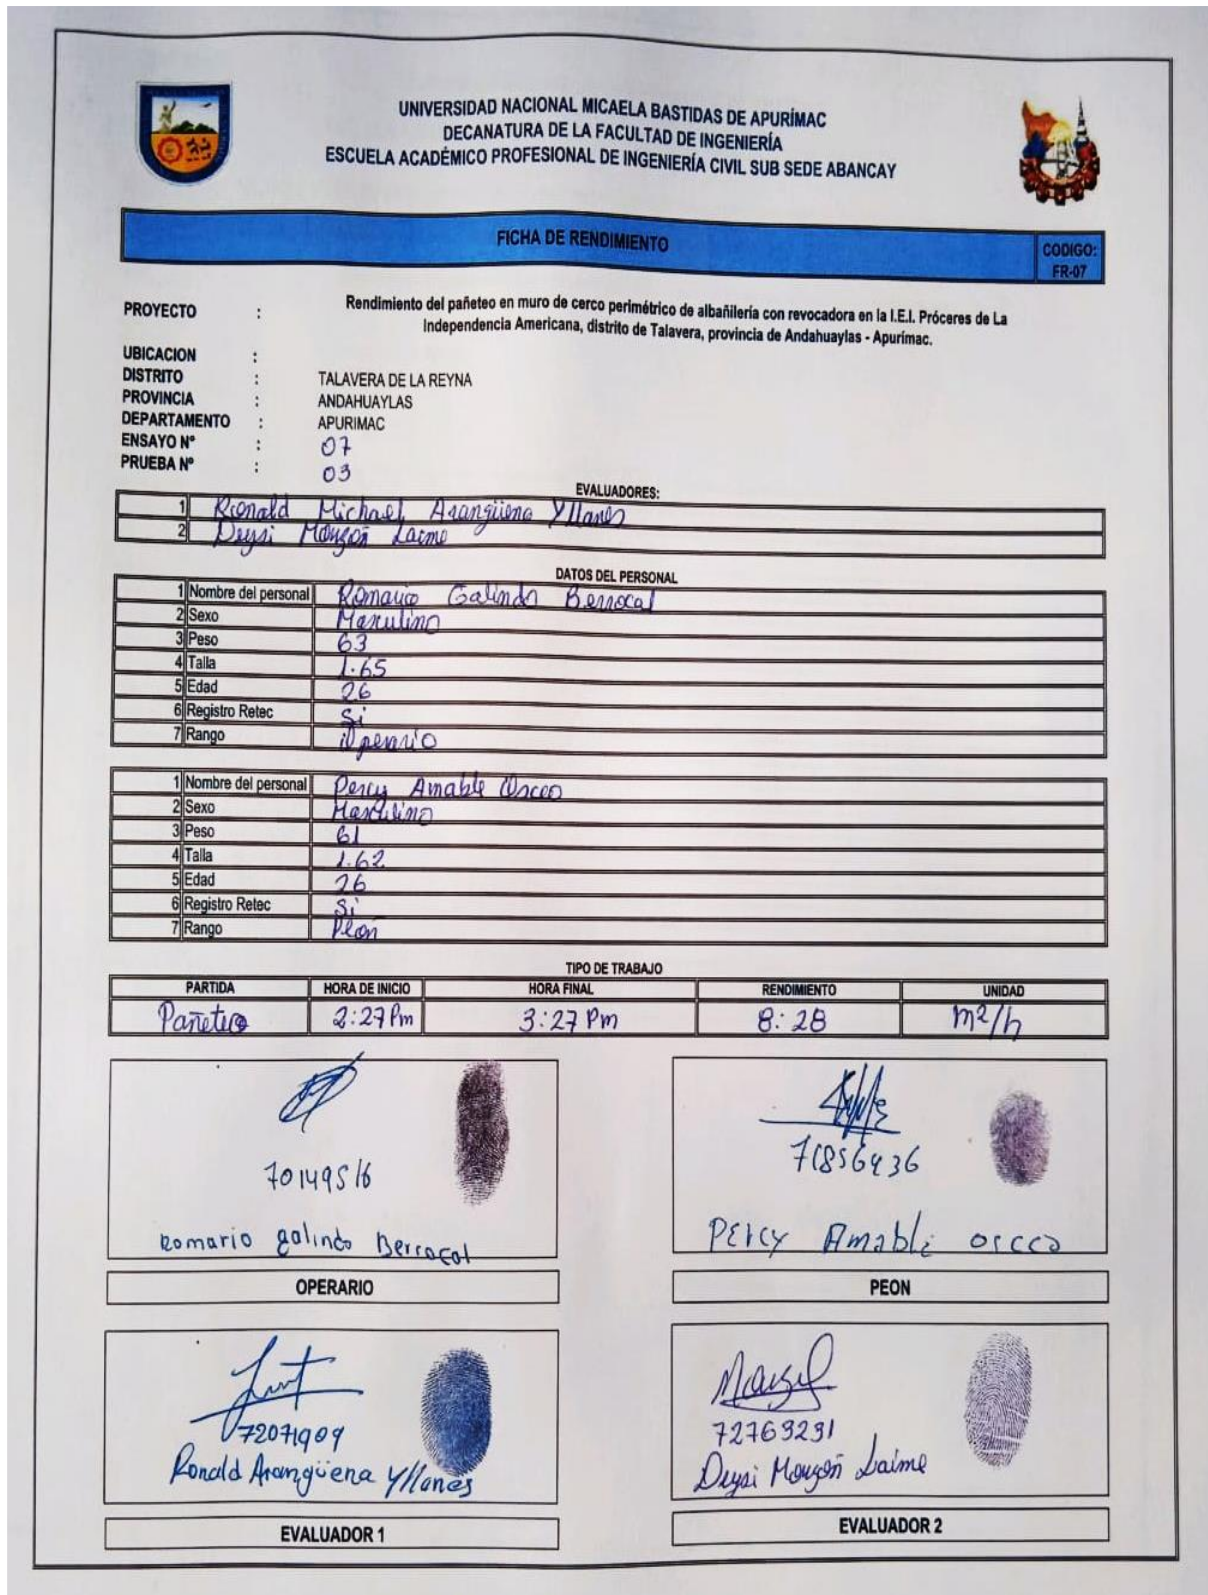 UNIVERSIDAD NACIONAL MICAELA BASTIDAS DE APURÍMAC
DECANATURA DE LA FACULTAD DE INGENIERÍA
ESCUELA ACADÉMICO PROFESIONAL DE INGENIERÍA CIVIL SUB SEDE ABANCAY
FICHA DE RENDIMIENTO
CODIGO:
FR-07
PROYECTO : Rendimiento del pañeteo en muro de cerco perimétrico de albañilería con revocadora en la I.E.I. Próceres de La
Independencia Americana, distrito de Talavera, provincia de Andahuaylas - Apurímac.
UBICACION :
DISTRITO : TALAVERA DE LA REYNA
PROVINCIA : ANDAHUAYLAS
DEPARTAMENTO : APURIMAC
ENSAYO Nº : 07
PRUEBA Nº : 03
EVALUADORES:
1 Ronald Michael Arangüena Yllanes
2 Deysi Monzón Laime
DATOS DEL PERSONAL
1 Nombre del personal Romario Galindo Berrocal
2 Sexo Masculino
3 Peso 63
4 Talla 1.65
5 Edad 26
6 Registro Retec Si
7 Rango Operario
1 Nombre del personal Percy Amable Oscco
2 Sexo Masculino
3 Peso 61
4 Talla 1.62
5 Edad 26
6 Registro Retec Si
7 Rango Peon
TIPO DE TRABAJO
PARTIDA HORA DE INICIO HORA FINAL RENDIMIENTO UNIDAD
Pañeteo 2:27 Pm 3:27 Pm 8:28 m2/h
70149516
Romario galindo Berrocal
OPERARIO
71856436
PERCY Amable oscco
PEON
72071909
Ronald Arangüena Yllanes
EVALUADOR 1
72769231
Deysi Monzón Laime
EVALUADOR 2